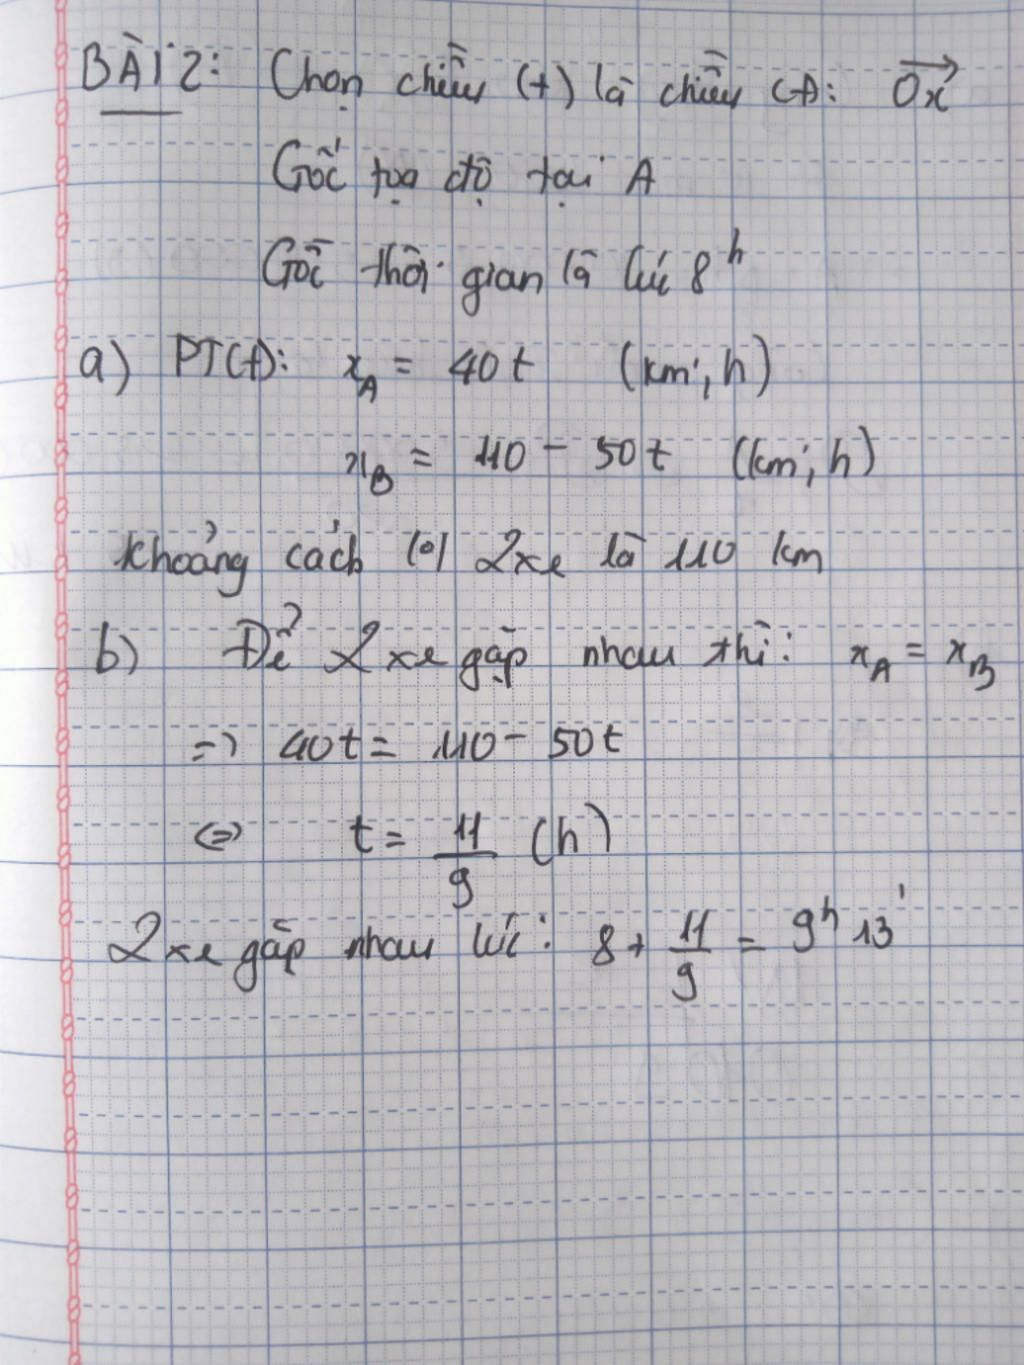 BÀI 2: Chọn chiều (+) là chiều cđ: Ox
Gốc tọa độ tại A
Gốc thời gian là lúc 8h
a) PT cđ: xA = 40t (km; h)
xB = 110 - 50t (km; h)
Khoảng cách (o) 2 xe là 110 km
b) Để 2 xe gặp nhau thì: xA = xB
=> 40t = 110 - 50t
<=> t = 11/9 (h)
2 xe gặp nhau lúc: 8 + 11/9 = 9h 13'